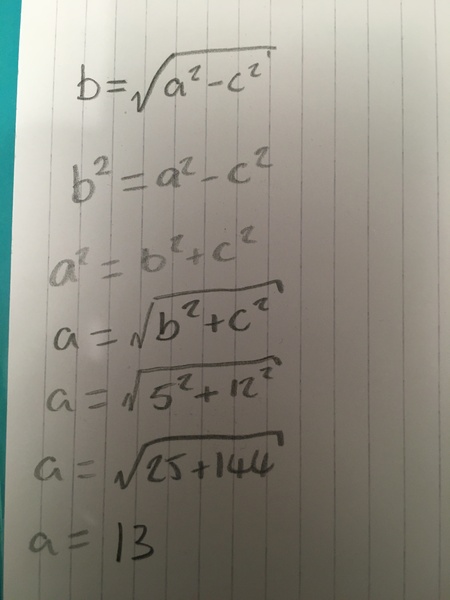 b = √(a² - c²)
b² = a² - c²
a² = b² + c²
a = √(b² + c²)
a = √(5² + 12²)
a = √(25 + 144)
a = 13